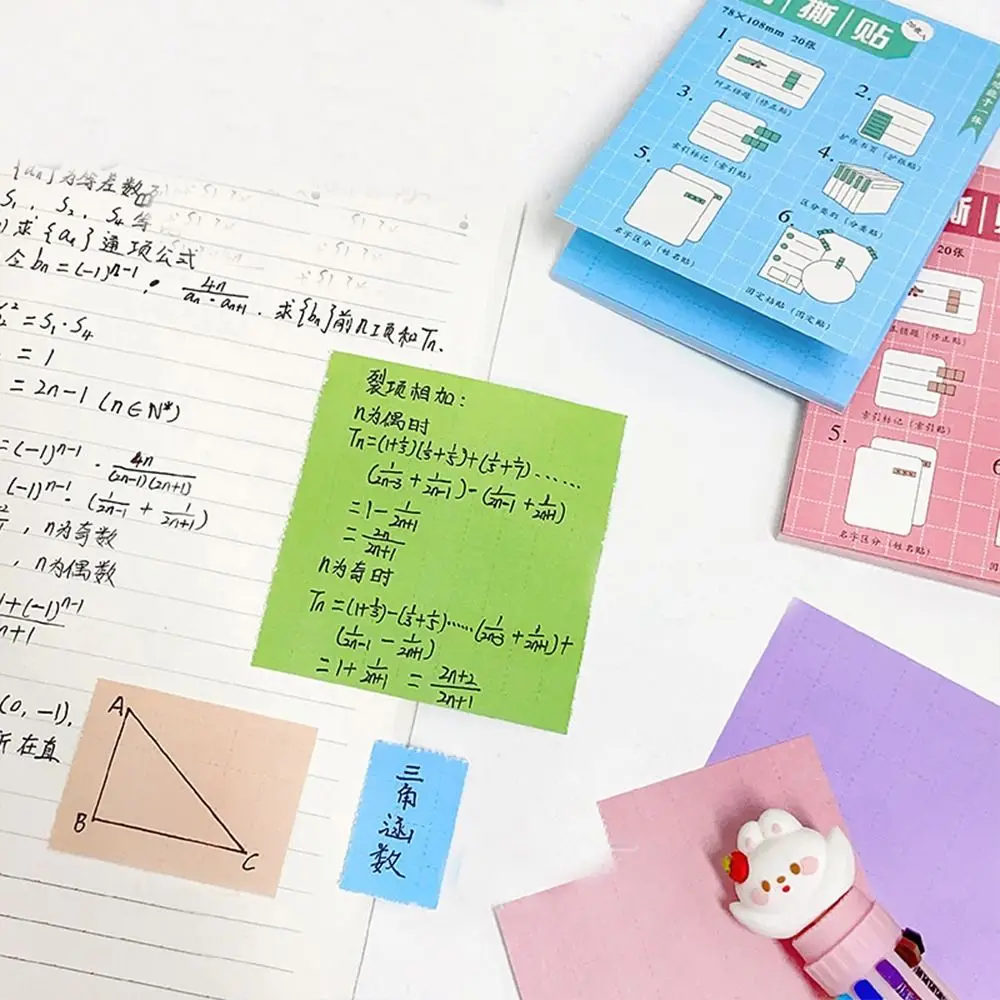 {an}为等差数
S1, S2, S4 等
)求{an}通项公式
令bn=(-1)^(n-1) · 4n/(an·an+1). 求{bn}前n项和Tn.
²=S1·S4
=1
=2n-1 (n∈N*)
=(-1)^(n-1) · 4n/((2n-1)(2n+1))
(-1)^(n-1)·(1/(2n-1) + 1/(2n+1))
, n为奇数
, n为偶数
1+(-1)^(n-1)
n+1
(0,-1),
所在直
裂项相加:
n为偶时
Tn=(1+1/3)(1/3+1/5)+(1/5+1/7)······
(1/(2n-3) + 1/(2n-1)) - (1/(2n-1) + 1/(2n+1))
=1-1/(2n+1)
=2n/(2n+1)
n为奇时
Tn=(1+1/3)-(1/3+1/5)······(1/(2n-3) + 1/(2n+1))+
(1/(2n-1) - 1/(2n+1))
=1+1/(2n+1) = (2n+2)/(2n+1)
A
B
C
三角涵数
撕|贴
78×108mm 20张
1.
纠正错题(修正贴)
2.
扩张书页(扩张贴)
3.
索引标记(索引贴)
4.
区分类别(分类贴)
5.
名字区分(姓名贴)
6.
固定拍贴(固定贴)
20张
错题(修正贴)
索引标记(索引贴)
5.
名字区分(姓名贴)
6